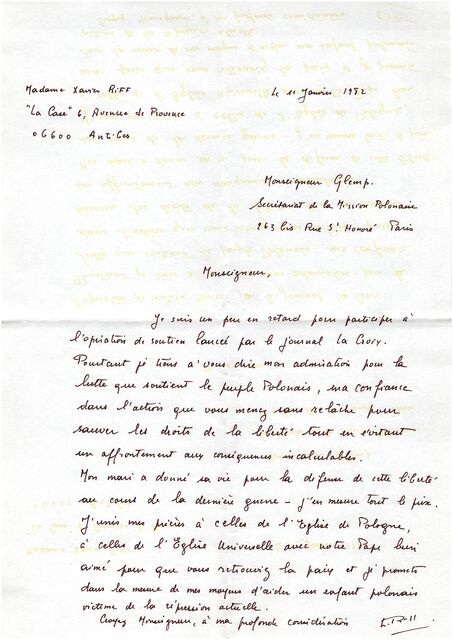 Madame Xavier Riff
Le 11 Janvier 1982
"La Case" 6, Avenue de Provence
06600 Antibes
Monseigneur Glemp.
Secrétariat de la Mission Polonaise
263 bis Rue St Honoré Paris
Monseigneur,
Je suis un peu en retard pour participer à
l'opération de soutien lancée par le journal La Croix.
Pourtant je tiens à vous dire mon admiration pour la
lutte que soutient le peuple Polonais, ma confiance
dans l'action que vous menez sans relâche pour
sauver les droits de la liberté tout en évitant
un affrontement aux conséquences incalculables.
Mon mari a donné sa vie pour la défense de cette liberté
au cours de la dernière guerre – j'en mesure tout le prix.
J'unis mes prières à celles de l'Eglise de Pologne,
à celles de l'Eglise Universelle avec notre Pape bien
aimé pour que vous retrouviez la paix et je promets
dans la mesure de mes moyens d'aider un enfant polonais
victime de la répression actuelle.
Croyez Monseigneur, à ma profonde considération